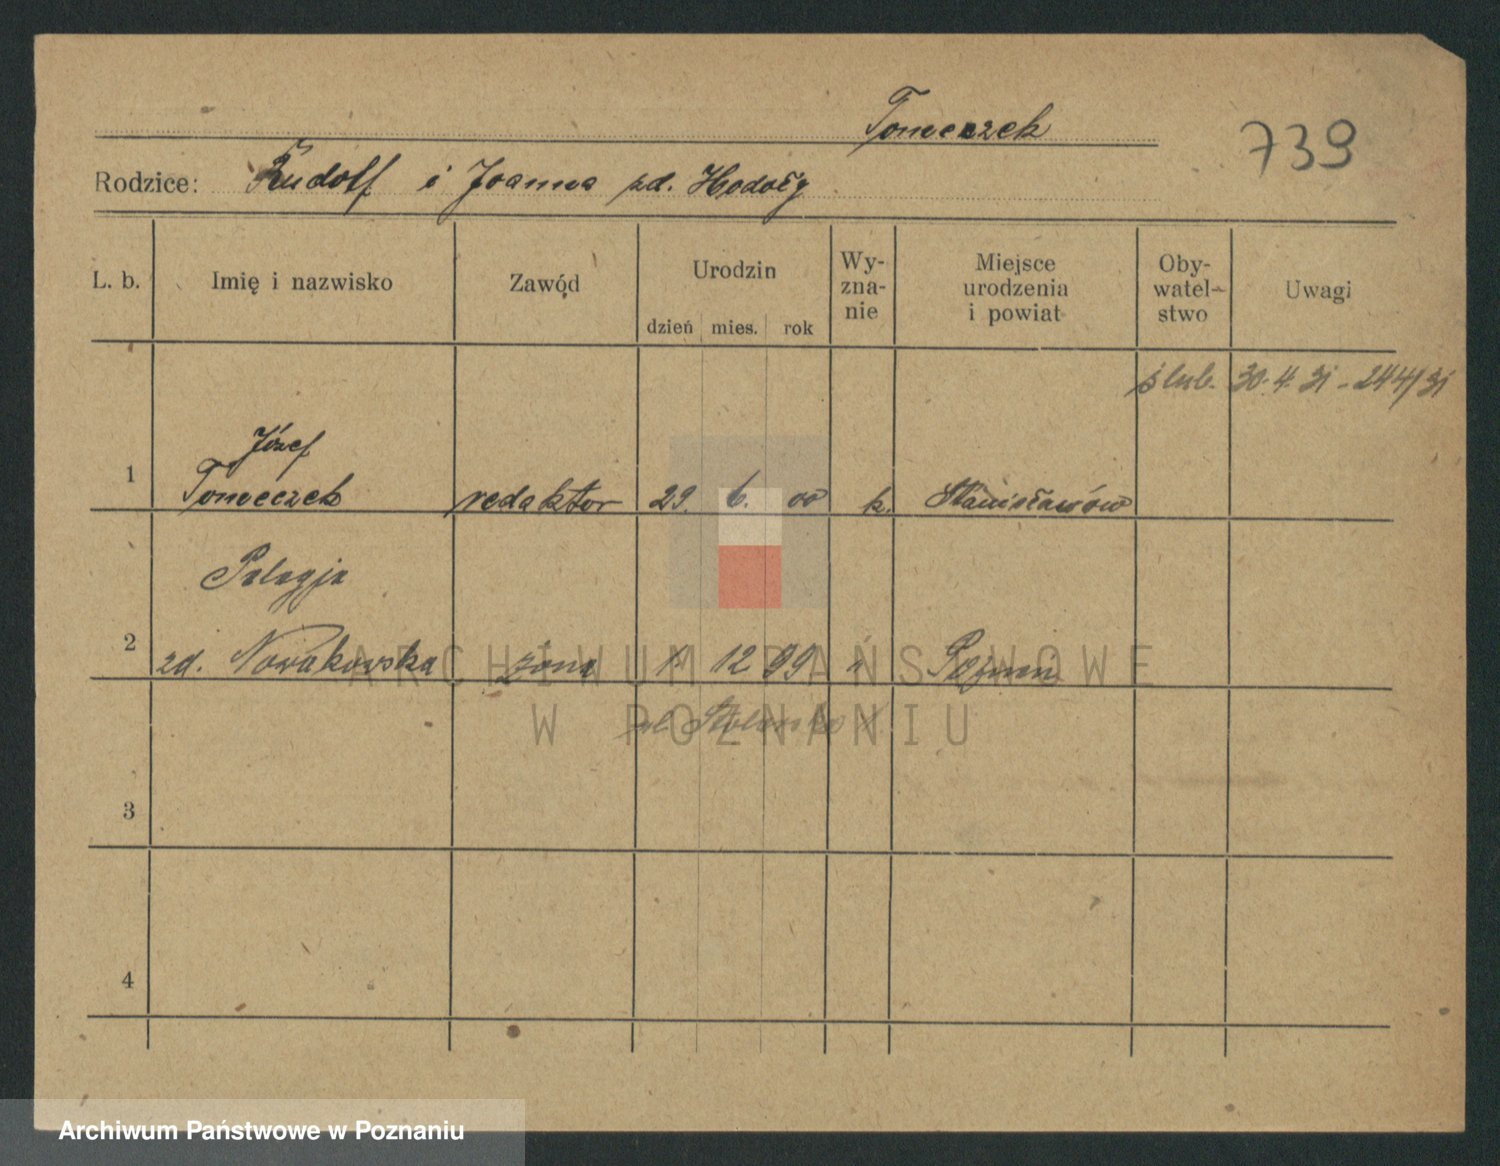 Tomeczek
739
Rodzice: Rudolf i Joanna zd. Hodoły
L. b. Imię i nazwisko Zawód Urodzin dzień mies. rok Wy-zna-nie Miejsce urodzenia i powiat Oby-watel-stwo Uwagi
ślub. 30.4.31 - 244/31
Józef
1 Tomeczek redaktor 29. 6. 00 k. Stanisławów
Pelagja
2 zd. Nowakowska żona 12 99 " Poznań
ARCHIWUM PAŃSTWOWE
W POZNANIU
3
4
Archiwum Państwowe w Poznaniu